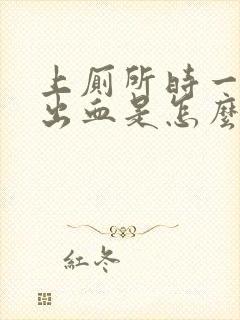 上厕所时一
出血是怎麼
紅冬